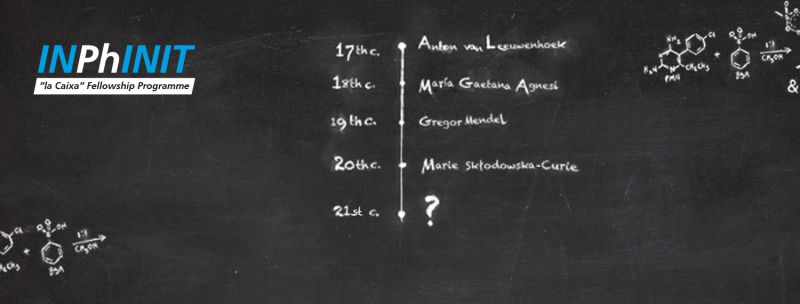 INPhINIT
"la Caixa" Fellowship Programme
17th c. Anton van Leeuwenhoek
18th c. María Gaetana Agnesi
19th c. Gregor Mendel
20th c. Marie Skłodowska-Curie
21st c. ?
NH₂ Cl
H₂N N CH₂CH₃
PMN
+
O OH
BSA
1:1
CH₃OH
&
Cl
CH₂CH₃
+
O OH
BSA
1:1
CH₃OH